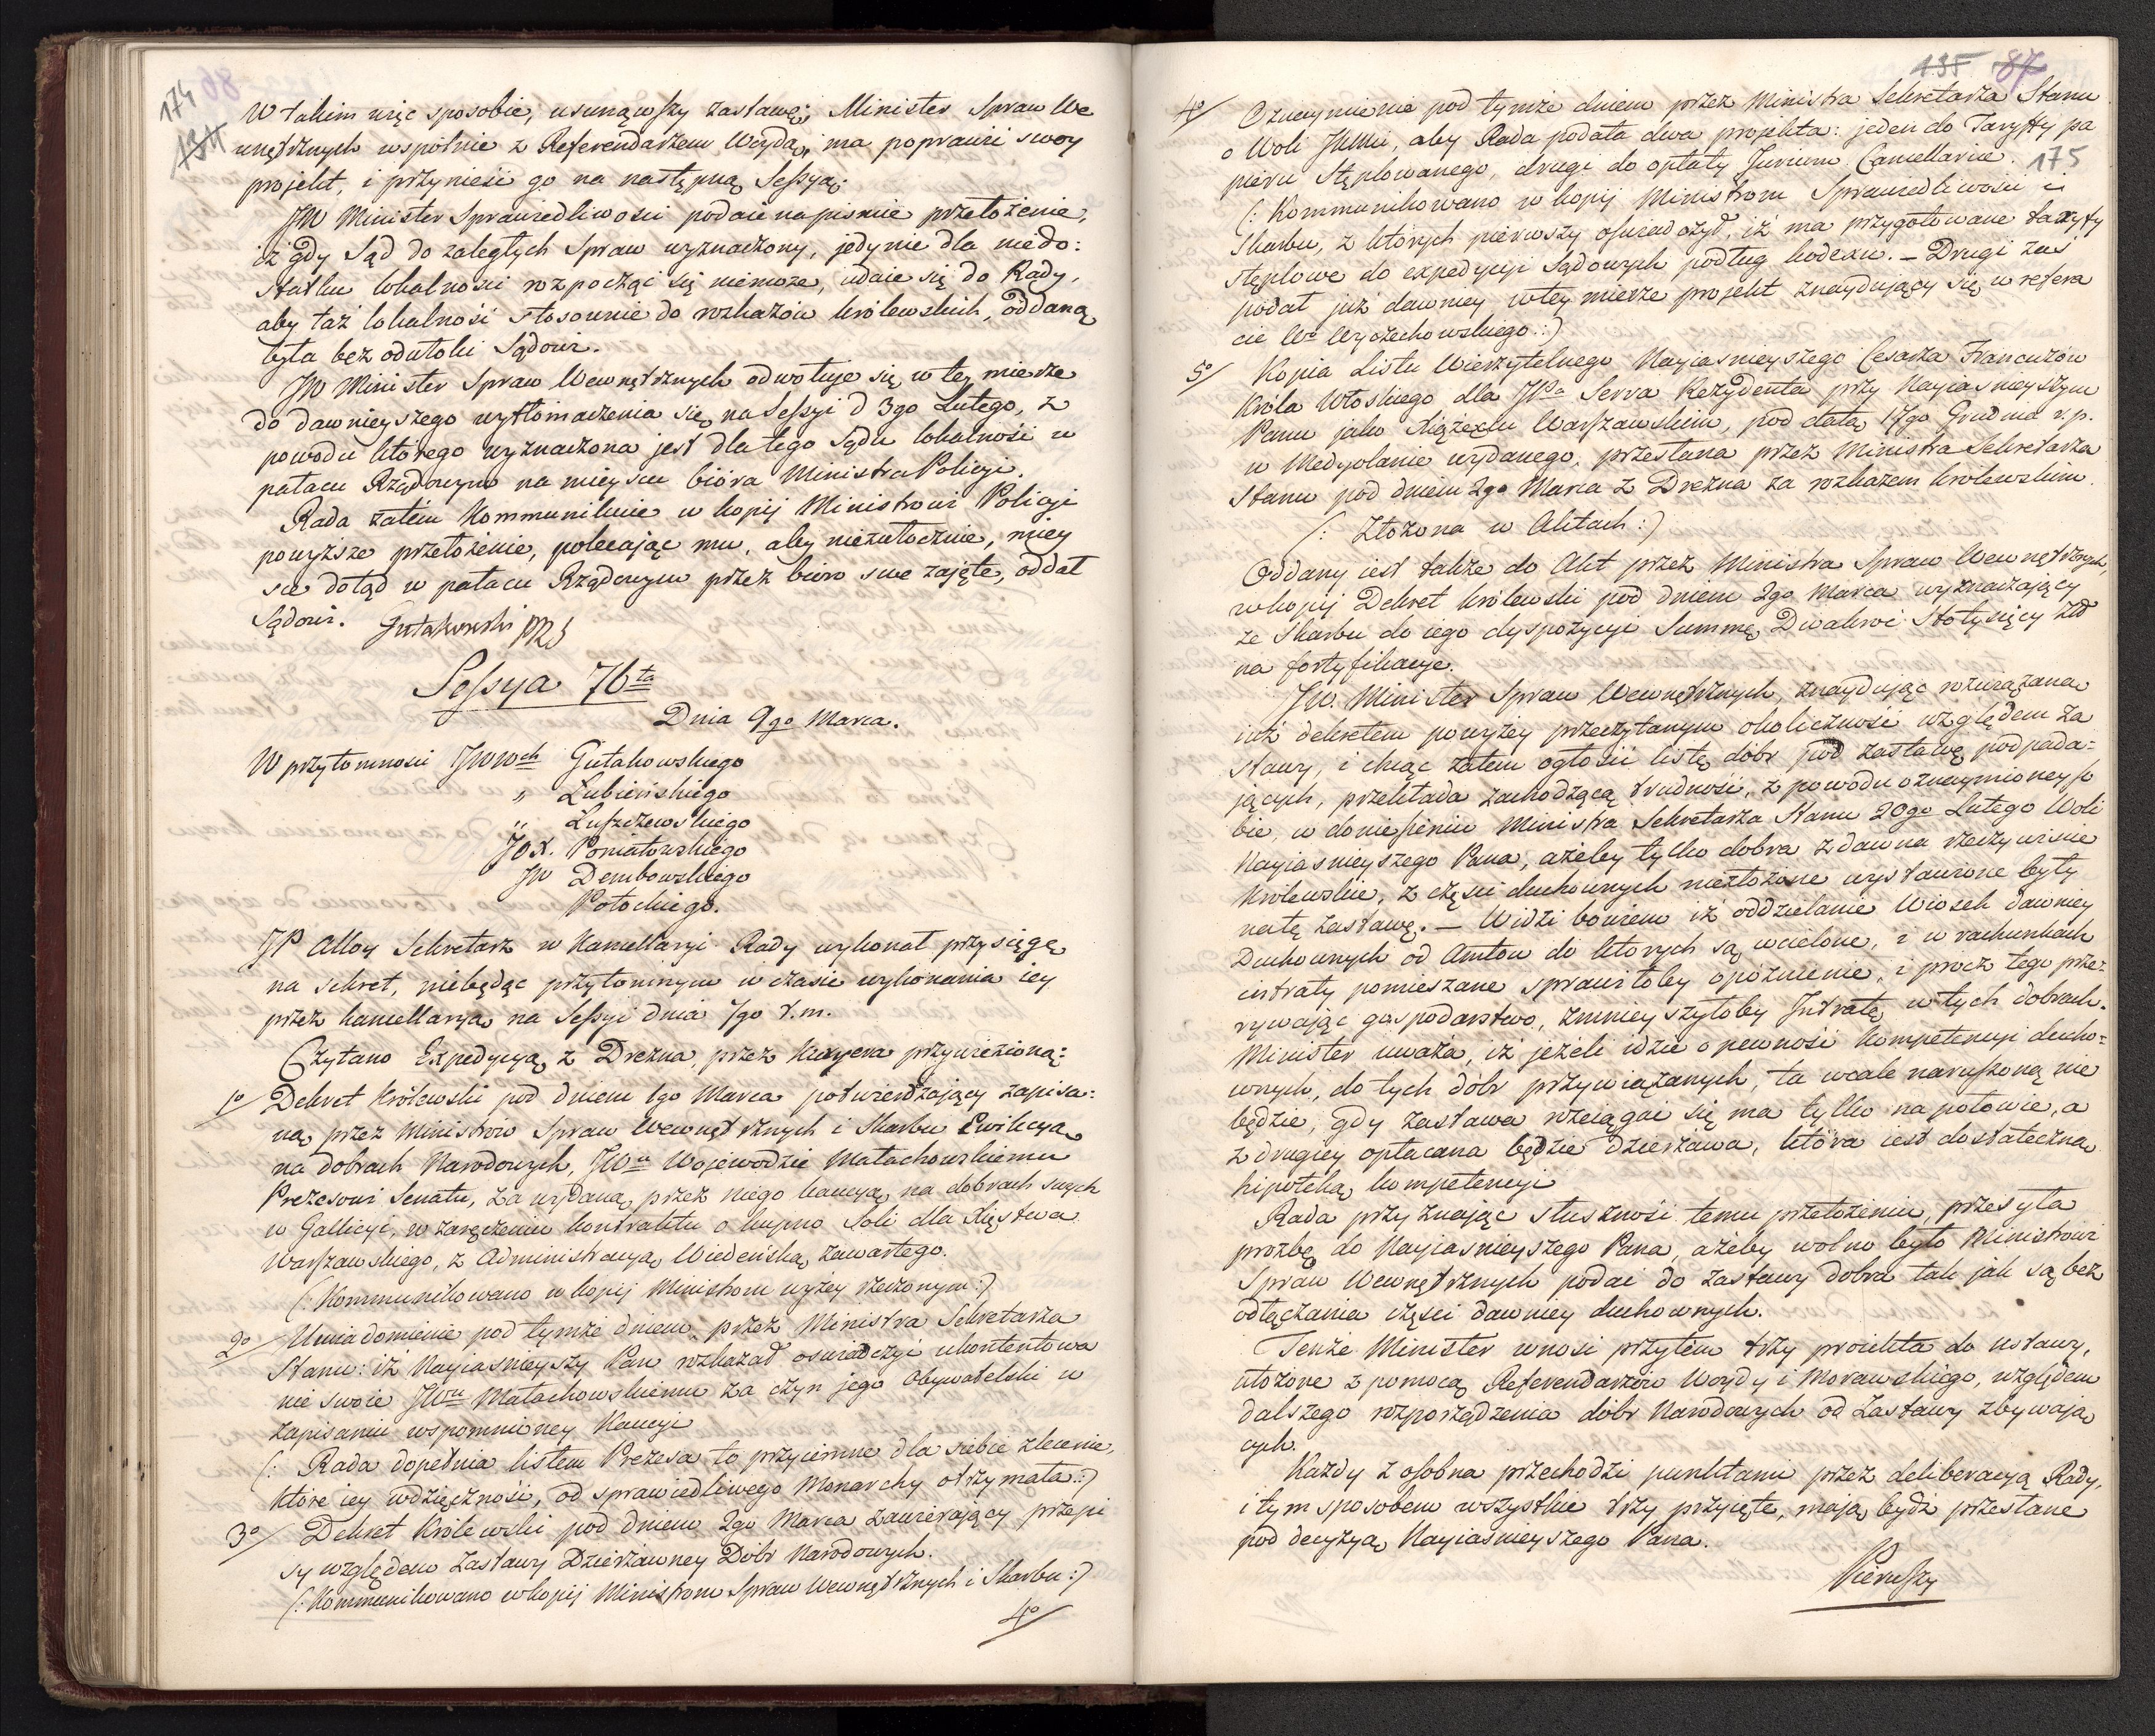 174
134
86
W takim więc sposobie, usunąwszy zastawę, Minister Spraw We
wnętrznych wspólnie z Referendarzem Woydą, ma poprawić swoy
projekt, i przynieść go na następną Sessyą.
JW Minister Sprawiedliwości podaie na pismie przełożenie,
iż gdy Sąd do zaległych Spraw wyznaczony, jedynie dla niedo:
statku lokalności rozpocząć się niemoże, udaie się do Rady,
aby taż lokalność stosownie do rozkazów królewskich, oddaną
była bez odwłoki Sądowi.
JW Minister Spraw Wewnętrznych odwołuje się w tey mierze
do dawnieyszego wytłomaczenia się na Sessyi d 3go Lutego, z
powodu którego wyznaczona jest dla tego Sądu lokalność w
pałacu Rządowym na mieyscu bióra Ministra Policyi.
Rada zatém Kommunikuie w kopij Ministrowi Policyi
powyższe przełożenie, polecając mu, aby niezwłocznie, miey
sce dotąd w pałacu Rządowym przez biuro swe zajęte, oddał
Sądowi. Gutakowski PRS
Sessya 76ta
Dnia 9go Marca.
W przytomności JWWch Gutakowskiego
" Łubieńskiego
" Łuszczewskiego
JOX. Poniatowskiego
JW Dembowskiego
Potockiego.
JP Alloy Sekretarz w Kancellaryi Rady wykonał przysięgę
na sekret, niebędąc przytomnym w czasie wykonania iey
przez kancellaryą na Sessyi dnia 7go t.m.
Czytano Expedycyą z Drezna, przez Kuryera przywiezioną:
1o/ Dekret Królewski pod dniem 1go Marca potwierdzający zapisa:
ną przez Ministrów Spraw Wewnętrznych i Skarbu Ewikcyą
na dobrach Narodowych, JWu Wojewodzie Małachowskiemu
Prezesowi Senatu, za wydaną przez niego kaucyą na dobrach swych
w Gallicyi, w zaręczeniu kontraktu o kupno Soli dla Xięstwa
Warszawskiego, z Administracyą Wiedeńską zawartego.
(: Kommunikowano w kopij Ministrom wyżey rzeczonym :)
2o/ Uwiadomienie pod tymże dniem, przez Ministra Sekretarza
Stanu: iż Nayiaśnieyszy Pan rozkazał oświadczyć ukontentowa
nie swoie JWmu Małachowskiemu za czyn jego Obywatelski w
zapisaniu wspomnioney Kaucyi
(: Rada dopełnia listem Prezesa to przyiemne dla siebie zlecenie,
które iey wdzięczności, od sprawiedliwego Monarchy otrzymała :)
3o/ Dekret Królewski pod dniem 2go Marca zawierający przepi
sy względem Zastawy Dzierżawney Dóbr Narodowych.
(: Kommunikowano w kopij Ministrom Spraw Wewnętrznych i Skarbu :)
4o/
135 87
175
4o/ Oznaymienie pod tymże dniem przez Ministra Sekretarza Stanu
o Woli JKMci, aby Rada podała dwa projekta: jeden do Taryfy pa
pieru stęplowanego, drugi do opłaty Jurium Cancellariæ.
(: Kommunikowano w kopij Ministrom Sprawiedliwości i
Skarbu, z których pierwszy oświadczył, iż ma przygotowane taxyfy
stęplowe do expedycyi Sądowych podług kodexu. – Drugi zaś
podał już dawniey w tey mierze projekt znaydujący się w refera
cie Wo Wyczechowskiego :)
5o/ Kopia Listu Wierzytelnego Nayiaśnieyszego Cesarza Francuzów
Króla Włoskiego dla JPa Serra Rezydenta przy Nayiaśnieyszym
Panu jako Xiążęciu Warszawskim, pod datą 17go Grudnia r.p.
w Medyolanie wydanego, przesłana przez Ministra Sekretarza
Stanu pod dniem 2go Marca z Drezna za rozkazem królewskim.
(: Złożona w Aktach :)
Oddany iest także do Akt przez Ministra Spraw Wewnętrznych,
w kopij Dekret królewski pod dniem 2go Marca wyznaczający
ze Skarbu do iego dyspozycyi Summę Dwakroć Stotysięcy Złł
na fortyfikacye.
JW. Minister Spraw Wewnętrznych, znaydując rozwiązaną
już dekretem powyżey przeczytanym okoliczność względem Za
stawy, i chcąc zatem ogłosić listę dóbr pod zastawę podpada:
jących, przekłada zachodzącą trudność, z powodu oznaymioney so
bie, w doniesieniu Ministra Sekretarza Stanu 20go Lutego Woli
Nayiaśnieyszego Pana, ażeby tylko dobra z dawna rzeczywiście
Królewskie, z części duchownych niezłożone wystawione były
na tę Zastawę. – Widzi bowiem iż oddzielanie Wiosek dawniey
Duchownych od Amtów do których są wcielone, i w rachunkach
intraty pomieszane sprawiłoby opóźnienie, i prócz tego prze:
rywając gospodarstwo, zmnieyszyłoby Jntratę w tych dobrach.
Minister uważa, iż jeżeli idzie o pewność Kompetencyi ducho:
wnych, do tych dóbr przywiązanych, ta wcale naruszoną nie
będzie, gdy zastawa rozciągać się ma tylko na połowie, a
z drugiey opłacana będzie dzierżawa, która iest dostateczną
hipoteką kompetencyi
Rada przyznając słuszność temu przełożeniu, przesyła
prozbę do Nayiaśnieyszego Pana, ażeby wolno było Ministrowi
Spraw Wewnętrznych podać do Zastawy dobra tak jak są bez
odłączania części dawniey duchownych.
Tenże Minister wnosi przytém trzy proiekta do ustawy,
ułożone z pomocą Referendarzów Woydy i Morawskiego, względem
dalszego rozporządzenia dóbr Narodowych od Zastawy zbywają
cych.
Każdy z osobna przechodzi punktami przez deliberacyą Rady,
i tym sposobem wszystkie trzy przyięte, mają bydź przesłane
pod decyzyą Nayiaśnieyszego Pana.
Pierwszy